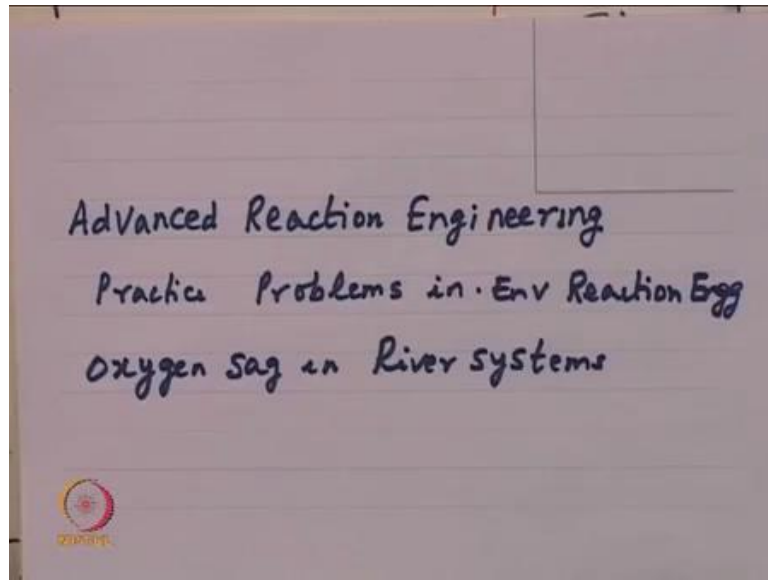 Advanced Reaction Engineering
Practice Problems in. Env Reaction Engg
Oxygen sag in River systems
NPTEL